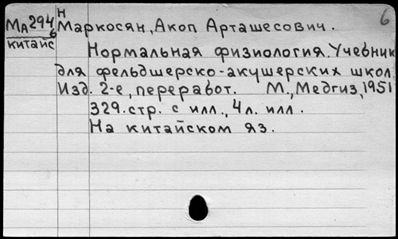 Н 6
МА294 Маркосян, Акоп Арташесович.
6
китайс Нормальная физиология. Учебник
для фельдшерско-акушерских школ.
Изд. 2-е, переработ. М., Медгиз, 1951
329.стр. с илл., 4 л. илл.
На китайском яз.